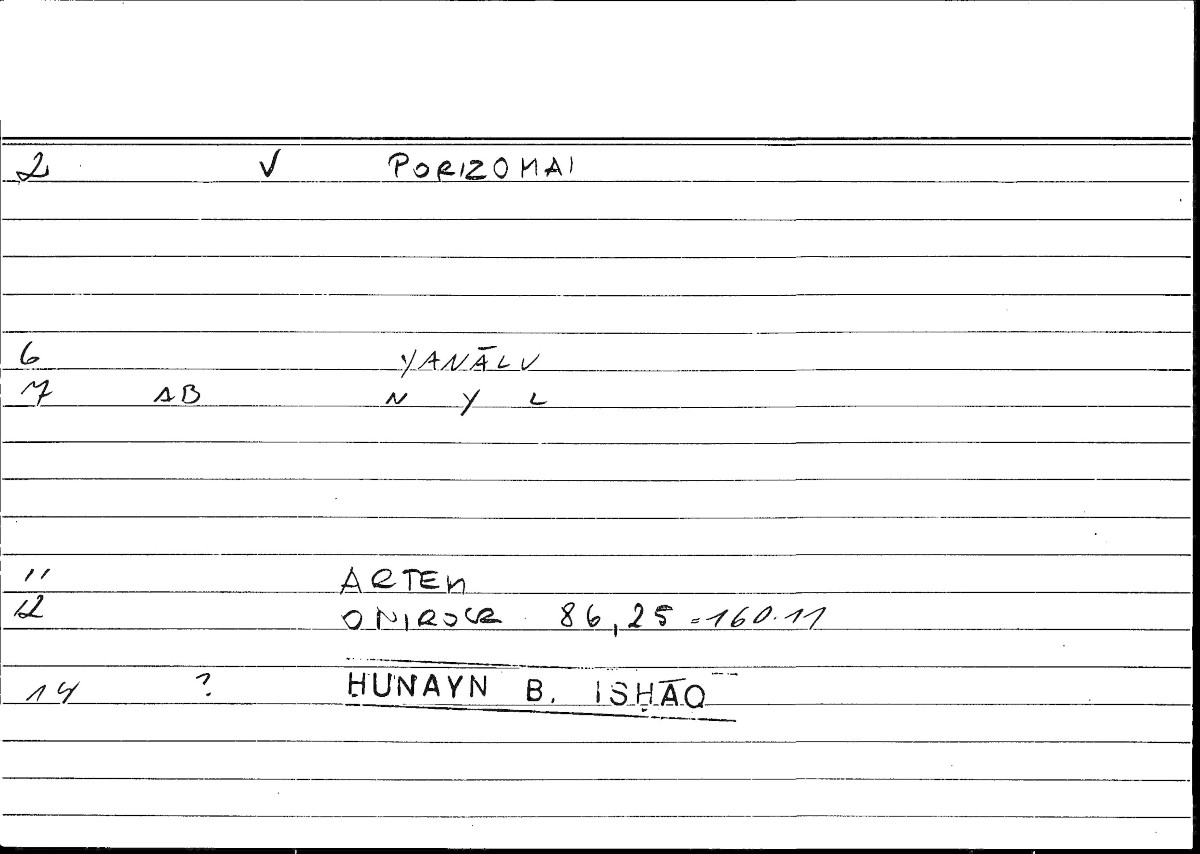 2 √ PORIZOMAI
6 YANĀLU
7 AB N Y L
11 ARTEM
12 ONIROCR 86,25=160.11
14 ? ḤUNAYN B. ISḤĀQ